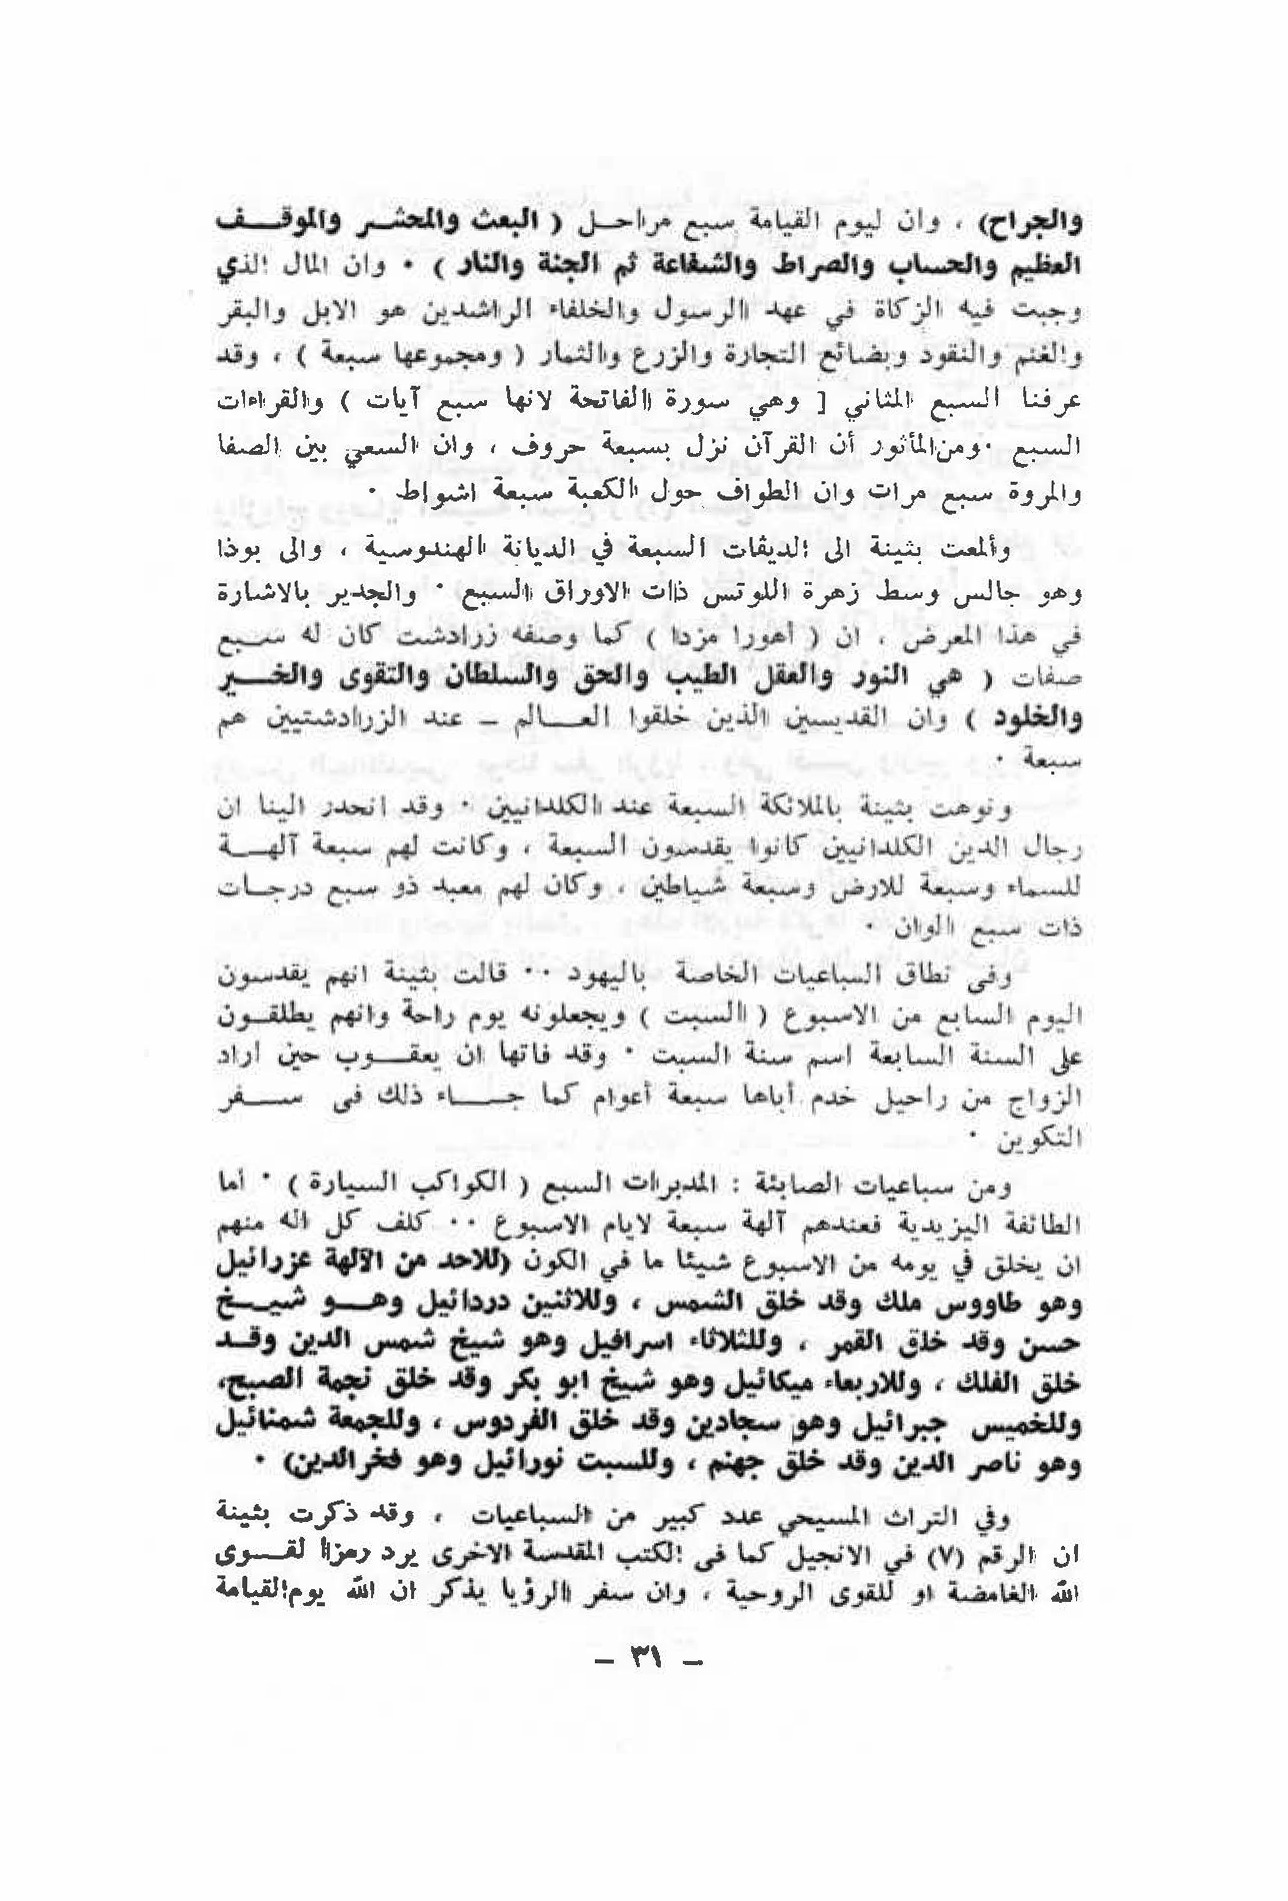 والجراح) ، وان ليوم القيامة سبع مراحل ( البعث والمحشر والموقف
العظيم والحساب والصراط والشفاعة ثم الجنة والنار ) • وان المال الذي
وجبت فيه الزكاة في عهد الرسول والخلفاء الراشدين هو الابل والبقر
والغنم والنقود وبضائع التجارة والزرع والثمار ( ومجموعها سبعة ) ، وقد
عرفنا السبع المثاني [ وهي سورة الفاتحة لانها سبع آيات ) والقراءات
السبع • ومن المأثور أن القرآن نزل بسبعة حروف ، وان السعي بين الصفا
والمروة سبع مرات وان الطواف حول الكعبة سبعة اشواط •
وألمعت بثينة الى الديفات السبعة في الديانة الهندوسية ، والى بوذا
وهو جالس وسط زهرة اللوتس ذات الاوراق السبع • والجدير بالاشارة
في هذا المعرض ، ان ( أهورا مزدا ) كما وصفه زرادشت كان له سبع
صفات ( هي النور والعقل الطيب والحق والسلطان والتقوى والخير
والخلود ) وان القديسين الذين خلقوا العالم – عند الزرادشتيين هم
سبعة •
ونوهت بثينة بالملائكة السبعة عند الكلدانيين • وقد انحدر الينا ان
رجال الدين الكلدانيين كانوا يقدسون السبعة ، وكانت لهم سبعة آلهة
للسماء وسبعة للارض وسبعة شياطين ، وكان لهم معبد ذو سبع درجات
ذات سبع الوان •
وفى نطاق السباعيات الخاصة باليهود •• قالت بثينة انهم يقدسون
اليوم السابع من الاسبوع ( السبت ) ويجعلونه يوم راحة وانهم يطلقون
على السنة السابعة اسم سنة السبت • وقد فاتها ان يعقوب حين اراد
الزواج من راحيل خدم أباها سبعة أعوام كما جاء ذلك فى سفر
التكوين •
ومن سباعيات الصابئة : المدبرات السبع ( الكواكب السيارة ) • أما
الطائفة اليزيدية فعندهم آلهة سبعة لايام الاسبوع •• كلف كل اله منهم
ان يخلق في يومه من الاسبوع شيئا ما في الكون (للاحد من الآلهة عزرائيل
وهو طاووس ملك وقد خلق الشمس ، وللاثنين دردائيل وهو شيخ
حسن وقد خلق القمر ، وللثلاثاء اسرافيل وهو شيخ شمس الدين وقد
خلق الفلك ، وللاربعاء ميكائيل وهو شيخ ابو بكر وقد خلق نجمة الصبح،
وللخميس جبرائيل وهو سجادين وقد خلق الفردوس ، وللجمعة شمنائيل
وهو ناصر الدين وقد خلق جهنم ، وللسبت نورائيل وهو فخرالدين) •
وفي التراث المسيحي عدد كبير من السباعيات ، وقد ذكرت بثينة
ان الرقم (٧) في الانجيل كما فى الكتب المقدسة الاخرى يرد رمزا لقوى
الله الغامضة او للقوى الروحية ، وان سفر الرؤيا يذكر ان الله يوم القيامة
– ٣١ –